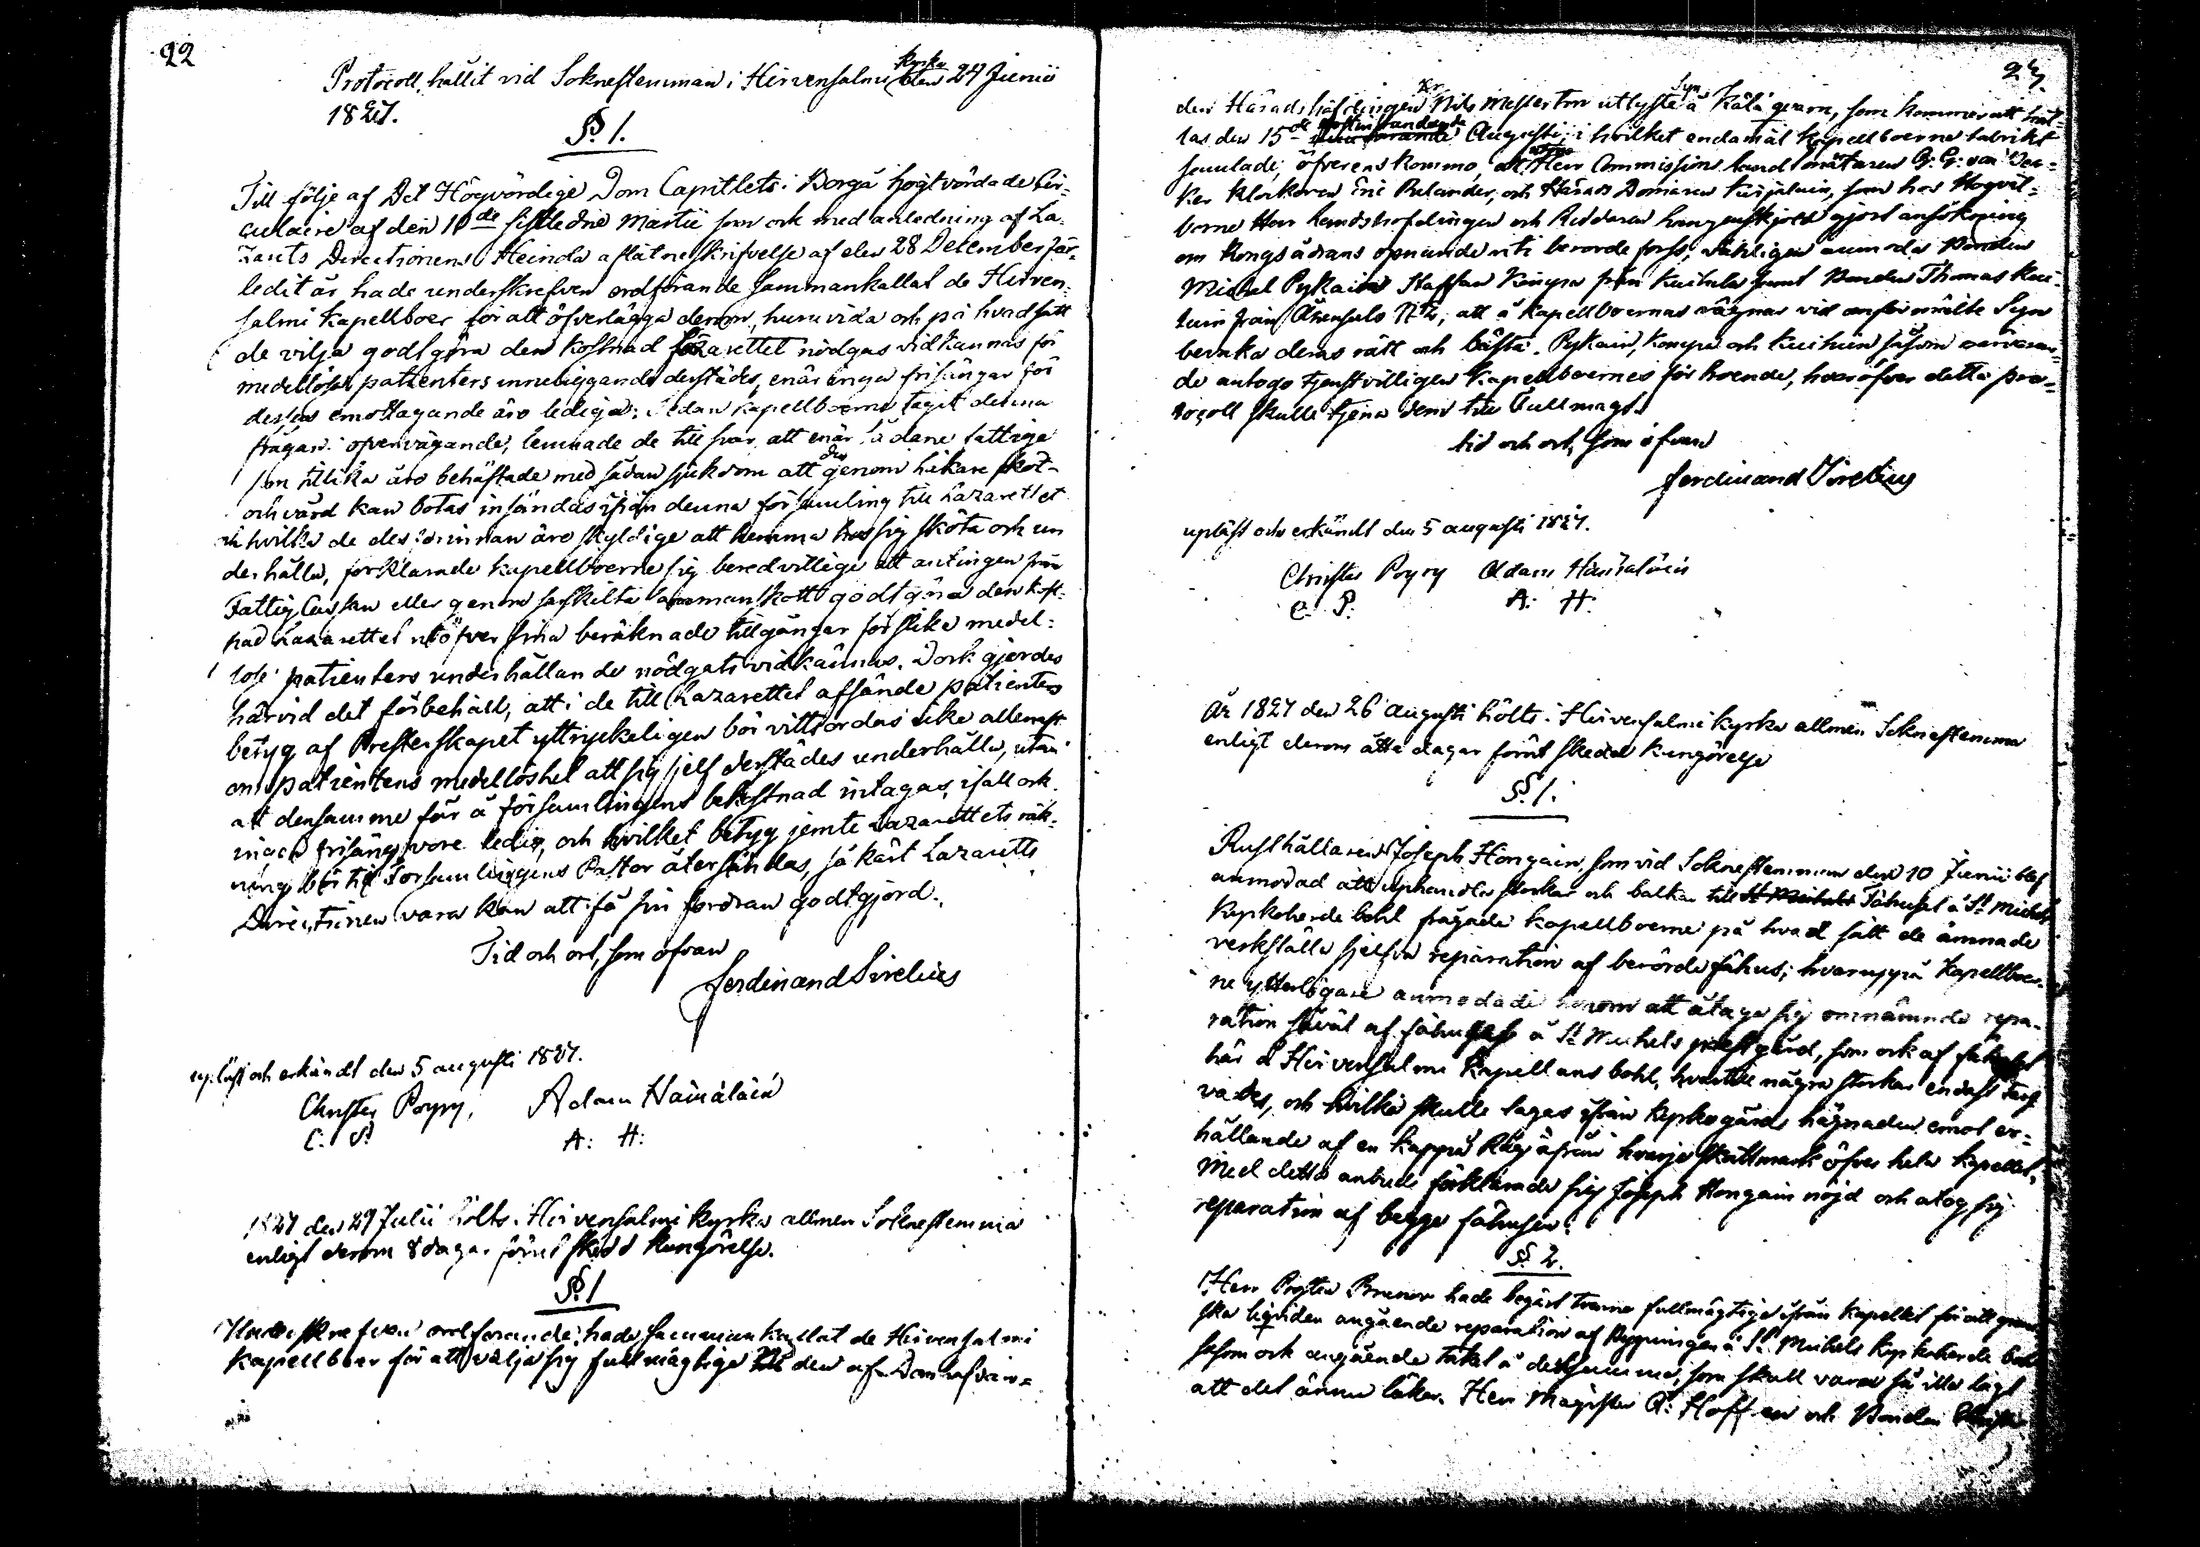 22
Protocoll, hållit vid Sokneslemman i Hirvensalmi Kyrka den 24 Junii
1827.
§ 1.
Till följe af Det Högvördige Dom Capitlets i Borgå högtvördade Cir-
culaire af den 10de sistledne Martii som ock med anledning af La-
zaretts Directionens i Heinola aflåtne skrifvelse af den 28 December för-
ledit år hade underskrefven ordförande sammankallat de Hirven-
salmi Kapellboer för att öfverlägga derom, huruvida och på hvad sätt
de vilja godtgöra den kostnad Lazarettet nödgas vidkännas för
medellösa patienters inneliggande derstädes, enär inga frisängar för
dessas emottagande äro lediga; Sedan kapellboerne tagit denna
frågan i öfvervägande, lemnade de till svar, att enär sådane fattige
som tillika äro behäftade med sådan sjukdom att den genom läkare sköt-
och vård kan botas insändas ifrån denna församling till Lazarettet
och hvilka de dessförinnan äro skyldige att hemma hos sig sköta och un
derhålla, förklarade kapellboerne sig beredvillige att antingen från
Fattig Cassan eller genom särskilta sammanskott godtgöra den kost-
nad Lazarettet utöfver sina beräknade tillgångar för slika medel-
lösa patienters underhållande nödgats vidkännas. Dock gjordes
härvid det förbehåll, att i de till Lazarettet afsände patienters
betyg af Presterskapet yttryckeligen bör vittsordas icke allenast
om patientens medellöshet att sig sjelf derstädes underhålla, utan
att densamme får å församlingens bekostnad intagas, ifall ock
ingen frisäng vore ledig, och hvilket betyg jemte Lazarettets räk-
ning bör till Församlingens Pastor återsändas, så kärt Lazaretts
Directionen vara kan att få sin fordran godtgjord.
Tid och ort, som ofvan
Ferdinand Sirelius
upläst och erkändt den 5 augusti 1827.
Christer Poyry, Adam Hämäläin
C. P. A: H:
1827 den 29 Julii hölts i Hirvensalmi kyrka allmen Sokneslemma
enligt derom 8 dagar förut skedd kungörelse.
§ 1
Underskrefven ordförande hade sammankallat de Hirvensalmi
Kapellboer för att välja sig fullmägtige till den af Domhafvan-
23.
den Häradshöfdingen Hr Nils Mesterton utlyste Syn å Kälä qvarn, som kommer att hål-
las den 15de nästinstundande Augusti; i hvilket endamål kapellboerne talrikt
samlade, öfverenskommo, att Herr Commissions Landtmätaren G. G. von Bec-
ker Klockaren Pulander, och Härads Domaren som hos Högväl-
borne Herr Landshöfdingen och Riddaren gjort ansökning
om Kongsådrans öpnande uti berörde fors, anmoda Bonden
Michel Pykäin Staffan från Kuitula samt Bonden Thomas Kui-
tuin från N 2, att å Kapellboernas vägnar vid anförmälte Syn
bevaka deras rätt och bästa. Pykäin, och Kuituin såsom närvaran-
de antogo tjenstvilligen Kapellboernes förtroende, hvaröfver detta pro-
tocoll skulle tjena dem till Fullmagt.
tid och ort, som ofvan
Ferdinand Sirelius
upläst och erkändt den 5 augusti 1827.
Christer Poyry Adam Hämäläin
C. P. A: H:
År 1827 den 26 augusti hölts i Hirvensalmi kyrka allmen Sokneslemma
enligt derom åtta dagar förut skedd kungörelse
§. 1.
Rusthållaren Joseph Hongain, som vid Sokneslemman den 10 Junii blef
anmodad att uphandla stockar och balkar till Fähuset å St Michels
Kyrkoherde bohl frågade kapellboerne på hvad sätt de ämnade
verkställa sjelfva reparation af berörde fähus; hvaruppå Kapellboer-
ne ytterligare anmodade honom att åtaga sig omnämnde repa-
ration såväl af fähuset å St Michels prestgård, som ock af fähuset
här å Hirvensalmi Kapellans bohl, hvartill några stockar endast
vades, och hvilka skulle tagas ifrån Kyrkogårds hägnaden emot er-
hållande af en kappa Råg ifrån hvarje skattmark öfver hela Kapellet,
Med detta anbud förklarade sig Joseph Hongain nöjd och åtog sig
reparation af begge fähusen.
§. 2.
Herr Prosten Brunow hade begärt tvenne fullmägtige ifrån kapellet för att gran-
ska liqviden angående reparation af Bygningen å St Michels Kyrkoherde bohl
såsom ock angående taket å densamma, som skall vara så illa lagt
att det ännu läker. Herr Magister och Bonden